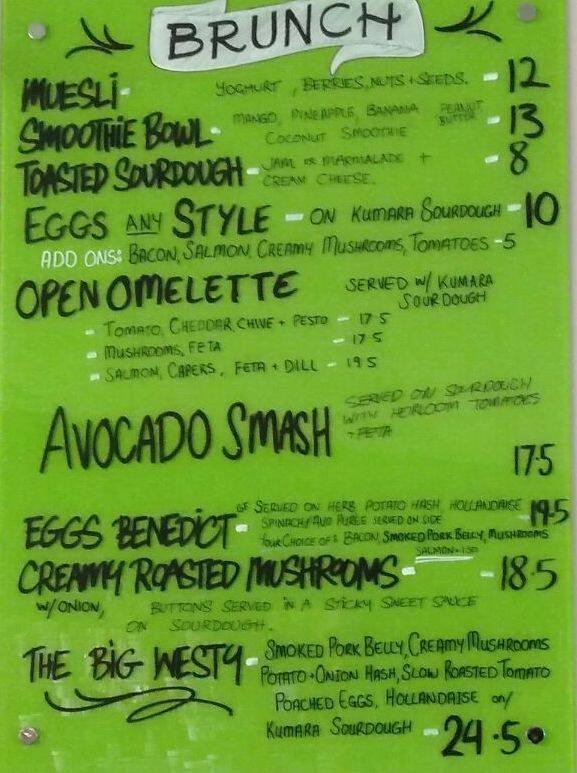 BRUNCH
MUESLI - YOGHURT, BERRIES, NUTS + SEEDS. - 12
SMOOTHIE BOWL - MANGO, PINEAPPLE, BANANA PEANUT BUTTER - 13
COCONUT SMOOTHIE
TOASTED SOURDOUGH - JAM or MARMALADE + - 8
CREAM CHEESE.
EGGS ANY STYLE - ON KUMARA SOURDOUGH - 10
ADD ONS: BACON, SALMON, CREAMY MUSHROOMS, TOMATOES - 5
OPEN OMELETTE SERVED W/ KUMARA
SOURDOUGH
- TOMATO, CHEDDAR, CHIVE + PESTO - 17.5
- MUSHROOMS, FETA - 17.5
- SALMON, CAPERS, FETA + DILL - 19.5
AVOCADO SMASH SERVED ON SOURDOUGH
WITH HEIRLOOM TOMATOES
+ FETA
17.5
EGGS BENEDICT - GF SERVED ON HERB POTATO HASH, HOLLANDAISE 19.5
SPINACH/AVO PUREE SERVED ON SIDE
YOUR CHOICE OF: BACON, SMOKED PORK BELLY, MUSHROOMS
CREAMY ROASTED MUSHROOMS - - 18.5
W/ONION, BUTTONS SERVED IN A STICKY SWEET SAUCE
ON SOURDOUGH.
THE BIG WESTY - SMOKED PORK BELLY, CREAMY MUSHROOMS
POTATO + ONION HASH, SLOW ROASTED TOMATO
POACHED EGGS, HOLLANDAISE on/
KUMARA SOURDOUGH - 24.5